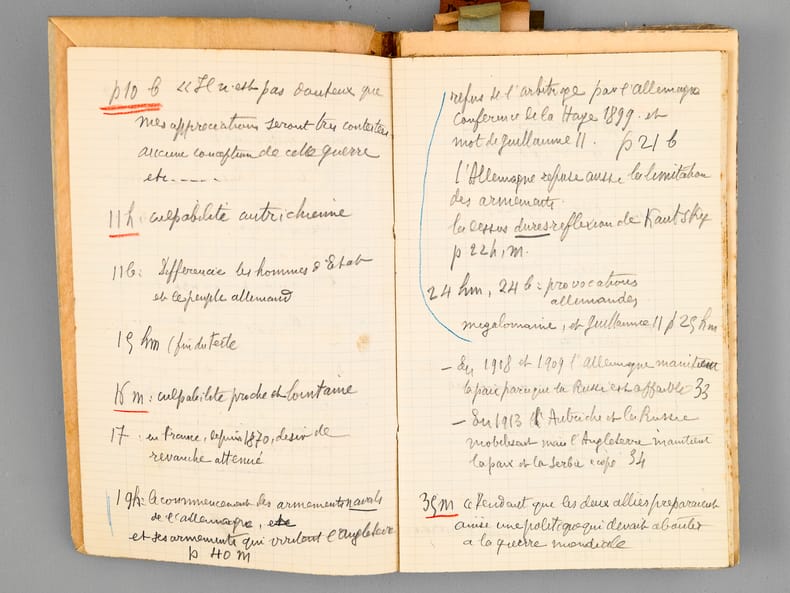 p10 b « Il n'est pas douteux que
mes appreciations seront tres contestees
aucune conception de cette guerre
etc-----
11h: culpabilité autrichienne
11b: Differencie les hommes d'Etat
et le peuple allemand
15 hm (fin du texte
16 m: culpabilite proche et lointaine
17 - en France, depuis 1870, desir de
revanche attenué
19h: le commencement des armements navals
de l'allemagne,
et des armements qui l'Angleterre
p 40 m
refus de l'arbitrage par l'allemagne
conference de la Haye 1899. et
mot de guillaume II. p 21 b
l'Allemagne refuse aussi la limitation
des armements.
la dessus dures reflexion de Kautsky
p 22h, m.
24 hm, 24 b = provocations
allemandes
megalomaine, et Guillaume II p 25 hm
- En 1908 et 1909 l'Allemagne maintient
la paix parceque la Russie est affaiblie 33
- En 1913 l'Autriche et la Russie
mobilisent mais l'Angleterre maintient
la paix et la Serbie cede 34
35 m cependant que les deux alliés preparaient
ainsi une politique qui devait aboutir
a la guerre mondiale